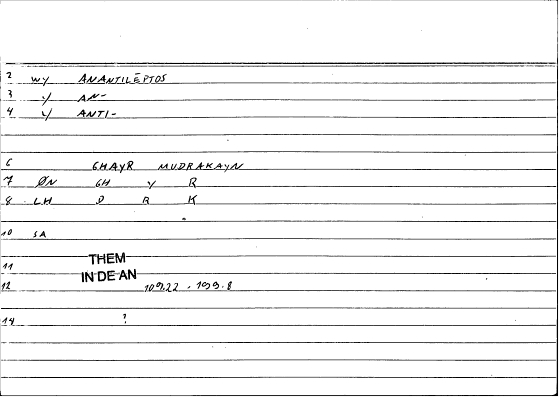 2 wy ANANTILĒPTOS
3 y AN-
4 y ANTI-
6 GHAYR MUDRAKAYN
7 ØN GH Y R
8 LH D R K
10 SA
THEM
11
IN DE AN
12 109.22 , 199.8
14 ?